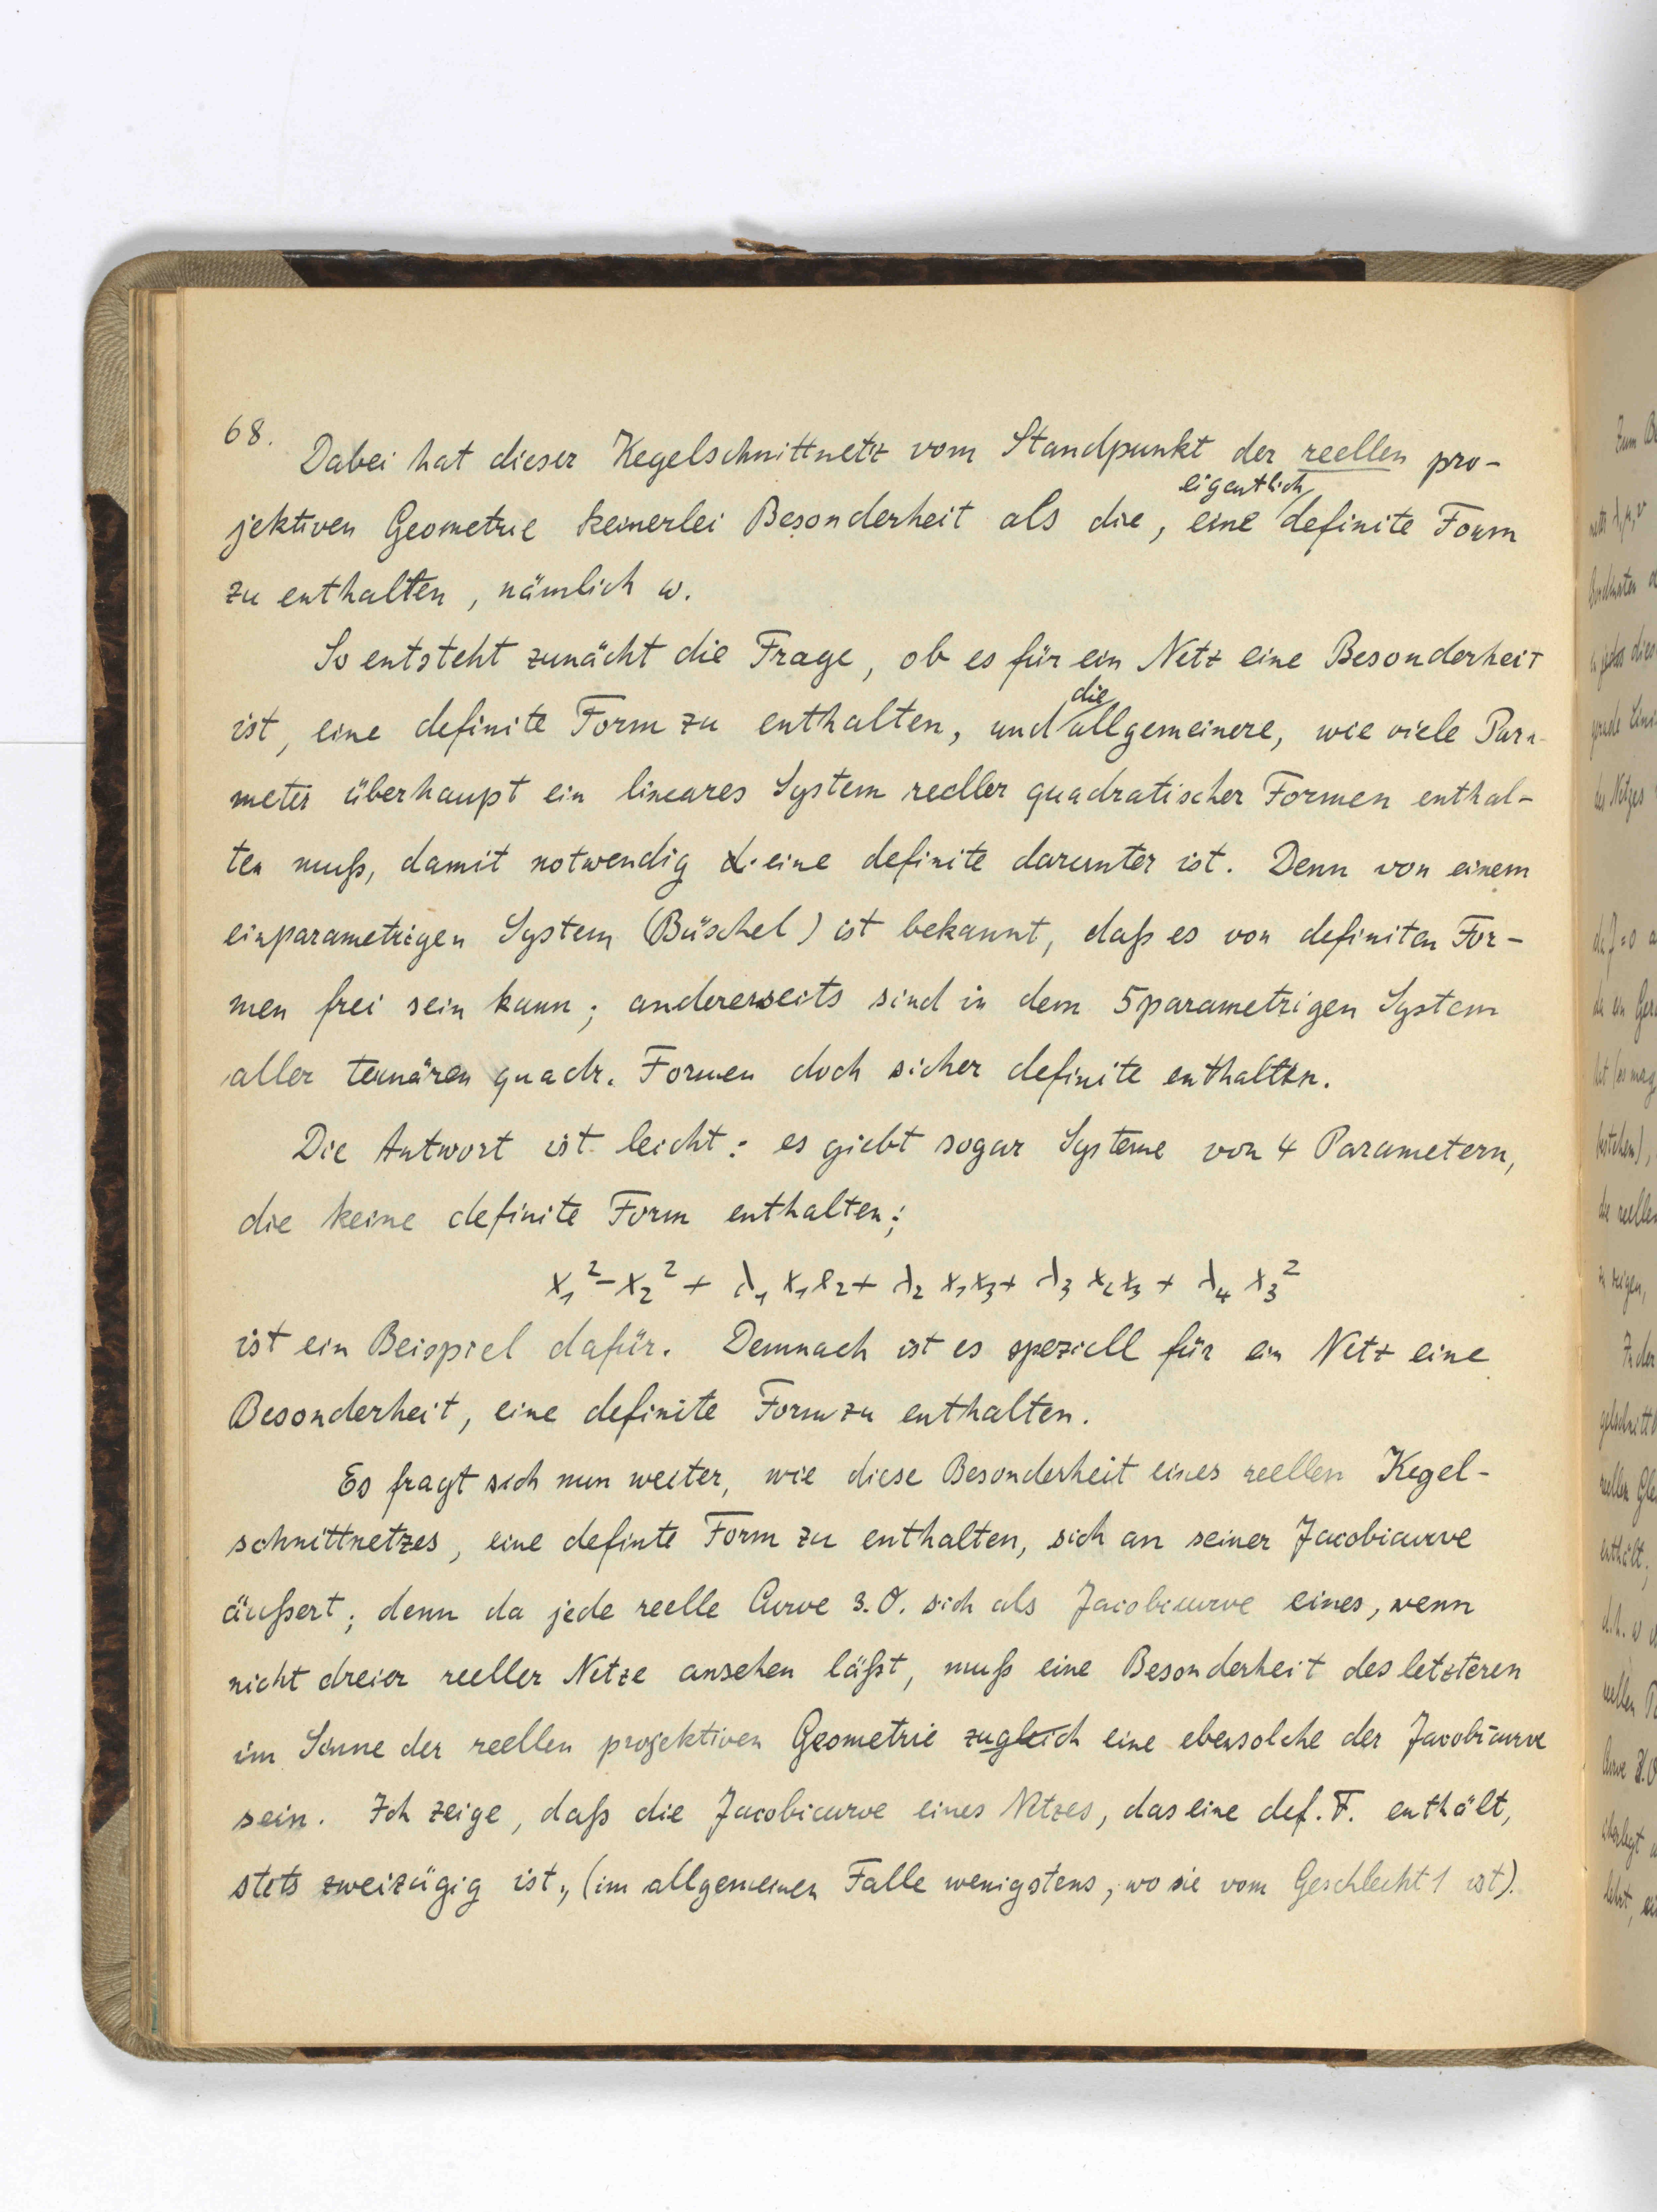 68.
Dabei hat dieser Kegelschnittnetz vom Standpunkt der reellen pro-
jektiven Geometrie keinerlei Besonderheit als die, eine eigentlich definite Form
zu enthalten, nämlich ω.
So entsteht zunächt die Frage, ob es für ein Netz eine Besonderheit
ist, eine definite Form zu enthalten, und die allgemeinere, wie viele Para-
meter überhaupt ein lineares System reeller quadratischer Formen enthal-
ten muß, damit notwendig eine definite darunter ist. Denn von einem
einparametrigen System (Büschel) ist bekannt, daß es von definiten For-
men frei sein kann; andererseits sind in dem 5parametrigen System
aller ternären quadr. Formen doch sicher definite enthalten.
Die Antwort ist leicht: es giebt sogar Systeme von 4 Parametern,
die keine definite Form enthalten;
x₁² - x₂² + λ₁ x₁x₂ + λ₂ x₁x₃ + λ₃ x₂x₃ + λ₄ x₃²
ist ein Beispiel dafür. Demnach ist es speziell für ein Netz eine
Besonderheit, eine definite Form zu enthalten.
Es fragt sich nun weiter, wie diese Besonderheit eines reellen Kegel-
schnittnetzes, eine definte Form zu enthalten, sich an seiner Jacobicurve
äußert; denn da jede reelle Curve 3.O. sich als Jacobicurve eines, wenn
nicht dreier reeller Netze ansehen läßt, muß eine Besonderheit des letzteren
im Sinne der reellen projektiven Geometrie zugleich eine ebensolche der Jacobicurve
sein. Ich zeige, daß die Jacobicurve eines Netzes, das eine def. F. enthält,
stets zweizügig ist, (im allgemeinen Falle wenigstens, wo sie vom Geschlecht 1 ist).